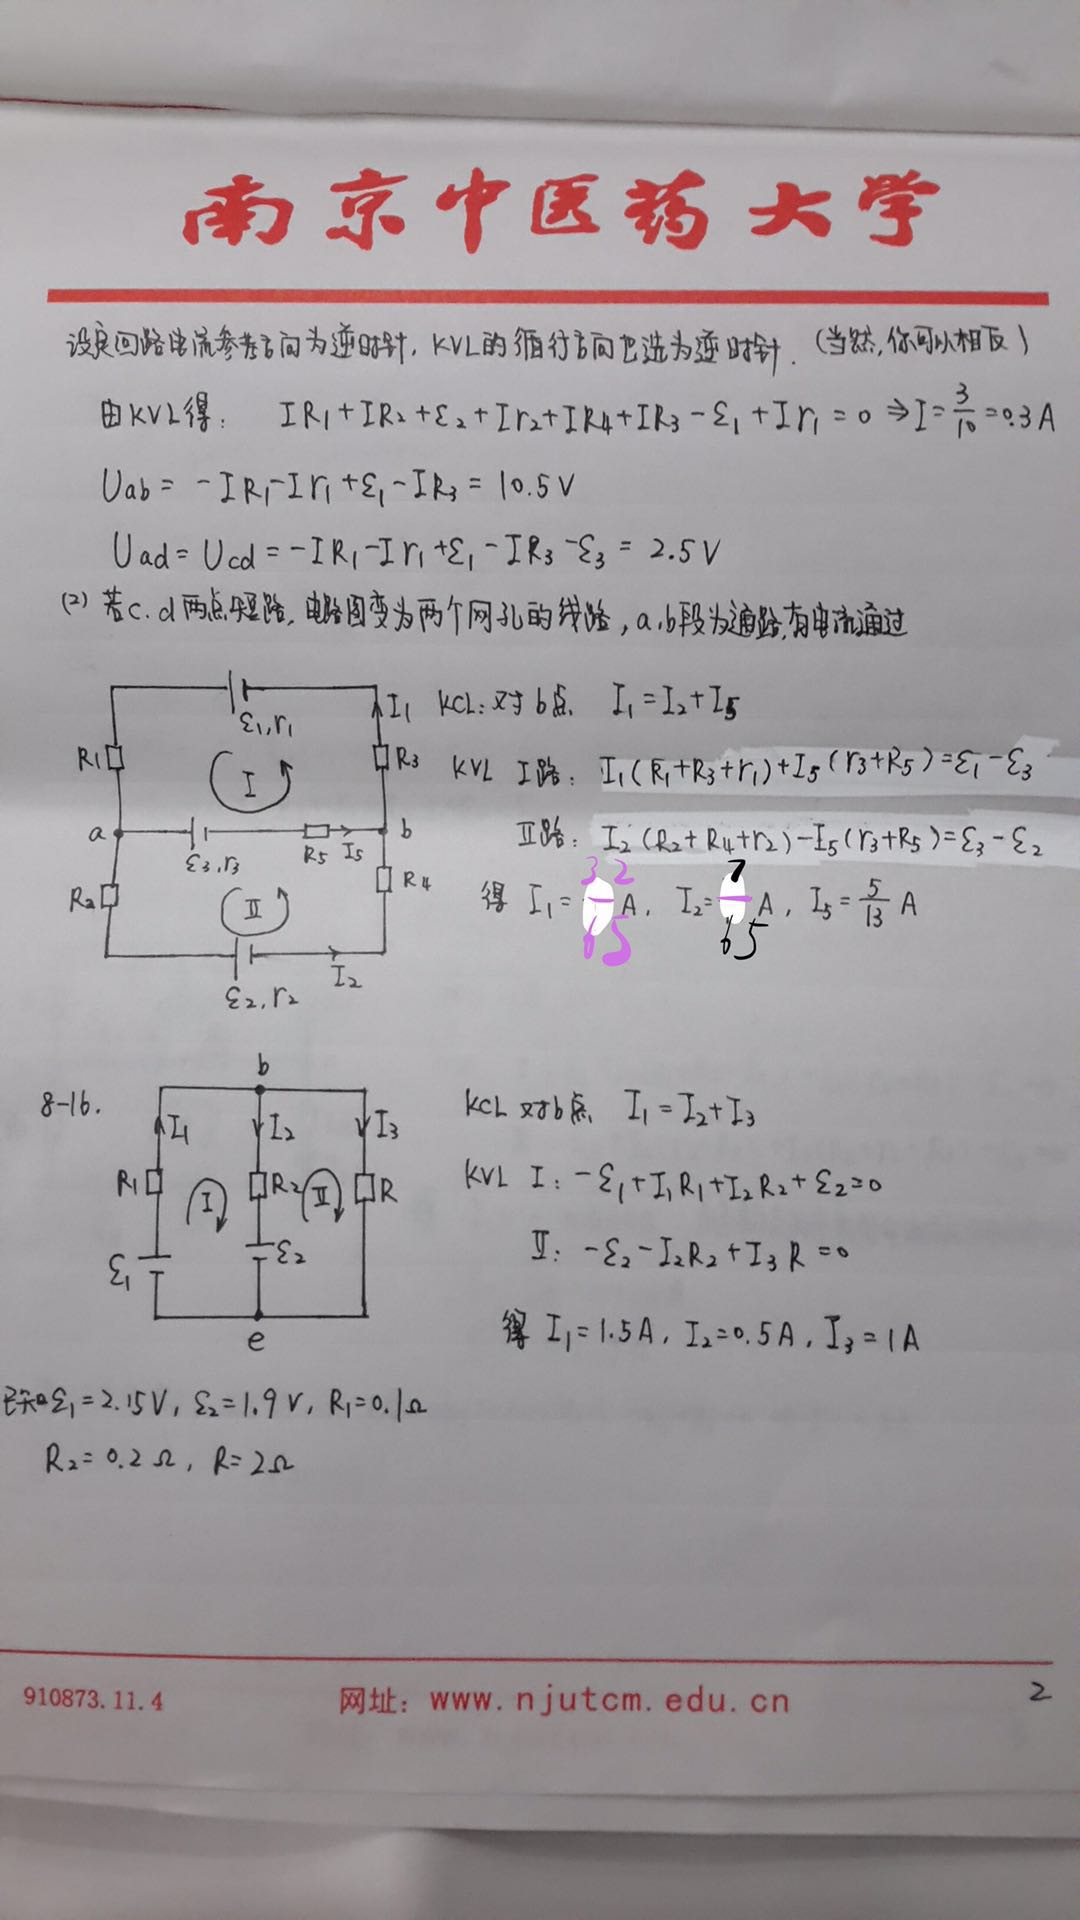 南京中医药大学
设定回路电流参考方向为逆时针，KVL的循行方向也选为逆时针.（当然，你可以相反）
由KVL得： IR₁+IR₂+ε₂+Ir₂+IR₄+IR₃-ε₁+Ir₁=0 ⇒ I=3/10=0.3A
Uab = -IR₁-Ir₁+ε₁-IR₃ = 10.5V
Uad = Ucd = -IR₁-Ir₁+ε₁-IR₃-ε₃ = 2.5V
(2) 若c.d两点短路，电路图变为两个网孔的线路，a.b段为通路，有电流通过
ε₁,r₁
I₁
R₁
I
R₃
a
b
ε₃,r₃
R₅
I₅
R₂
II
R₄
I₂
ε₂,r₂
KCL：对于b点 I₁=I₂+I₅
KVL I路： I₁(R₁+R₃+r₁)+I₅(r₃+R₅)=ε₁-ε₃
II路： I₂(R₂+R₄+r₂)-I₅(r₃+R₅)=ε₃-ε₂
得 I₁=32/65 A， I₂=7/65 A， I₅=5/13 A
8-16.
b
I₁
I₂
I₃
R₁
I
R₂
II
R
ε₁
ε₂
e
KCL 对b点 I₁=I₂+I₃
KVL I： -ε₁+I₁R₁+I₂R₂+ε₂=0
II： -ε₂-I₂R₂+I₃R=0
得 I₁=1.5A， I₂=0.5A， I₃=1A
已知ε₁=2.15V， ε₂=1.9V， R₁=0.1Ω
R₂=0.2Ω， R=2Ω
910873.11.4
网址：www.njutcm.edu.cn
2